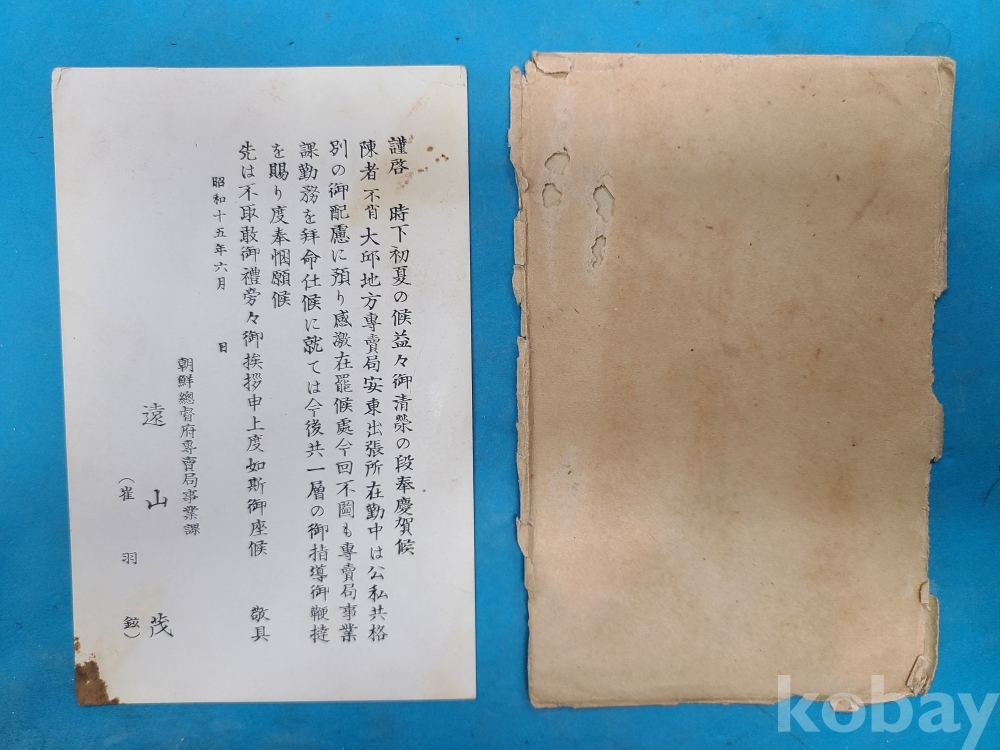 謹啓　時下初夏の候益々御清榮の段奉慶賀候
陳者不肖大邱地方專賣局安東出張所在勤中は公私共格
別の御配慮に預り感激在罷候處今回不圖も專賣局事業
課勤務を拜命仕候に就ては今後共一層の御指導御鞭撻
を賜り度奉悃願候
先は不取敢御禮旁々御挨拶申上度如斯御座候　敬具
昭和十五年六月　日
朝鮮總督府專賣局事業課
遠山茂
（崔羽鉉）
kobay